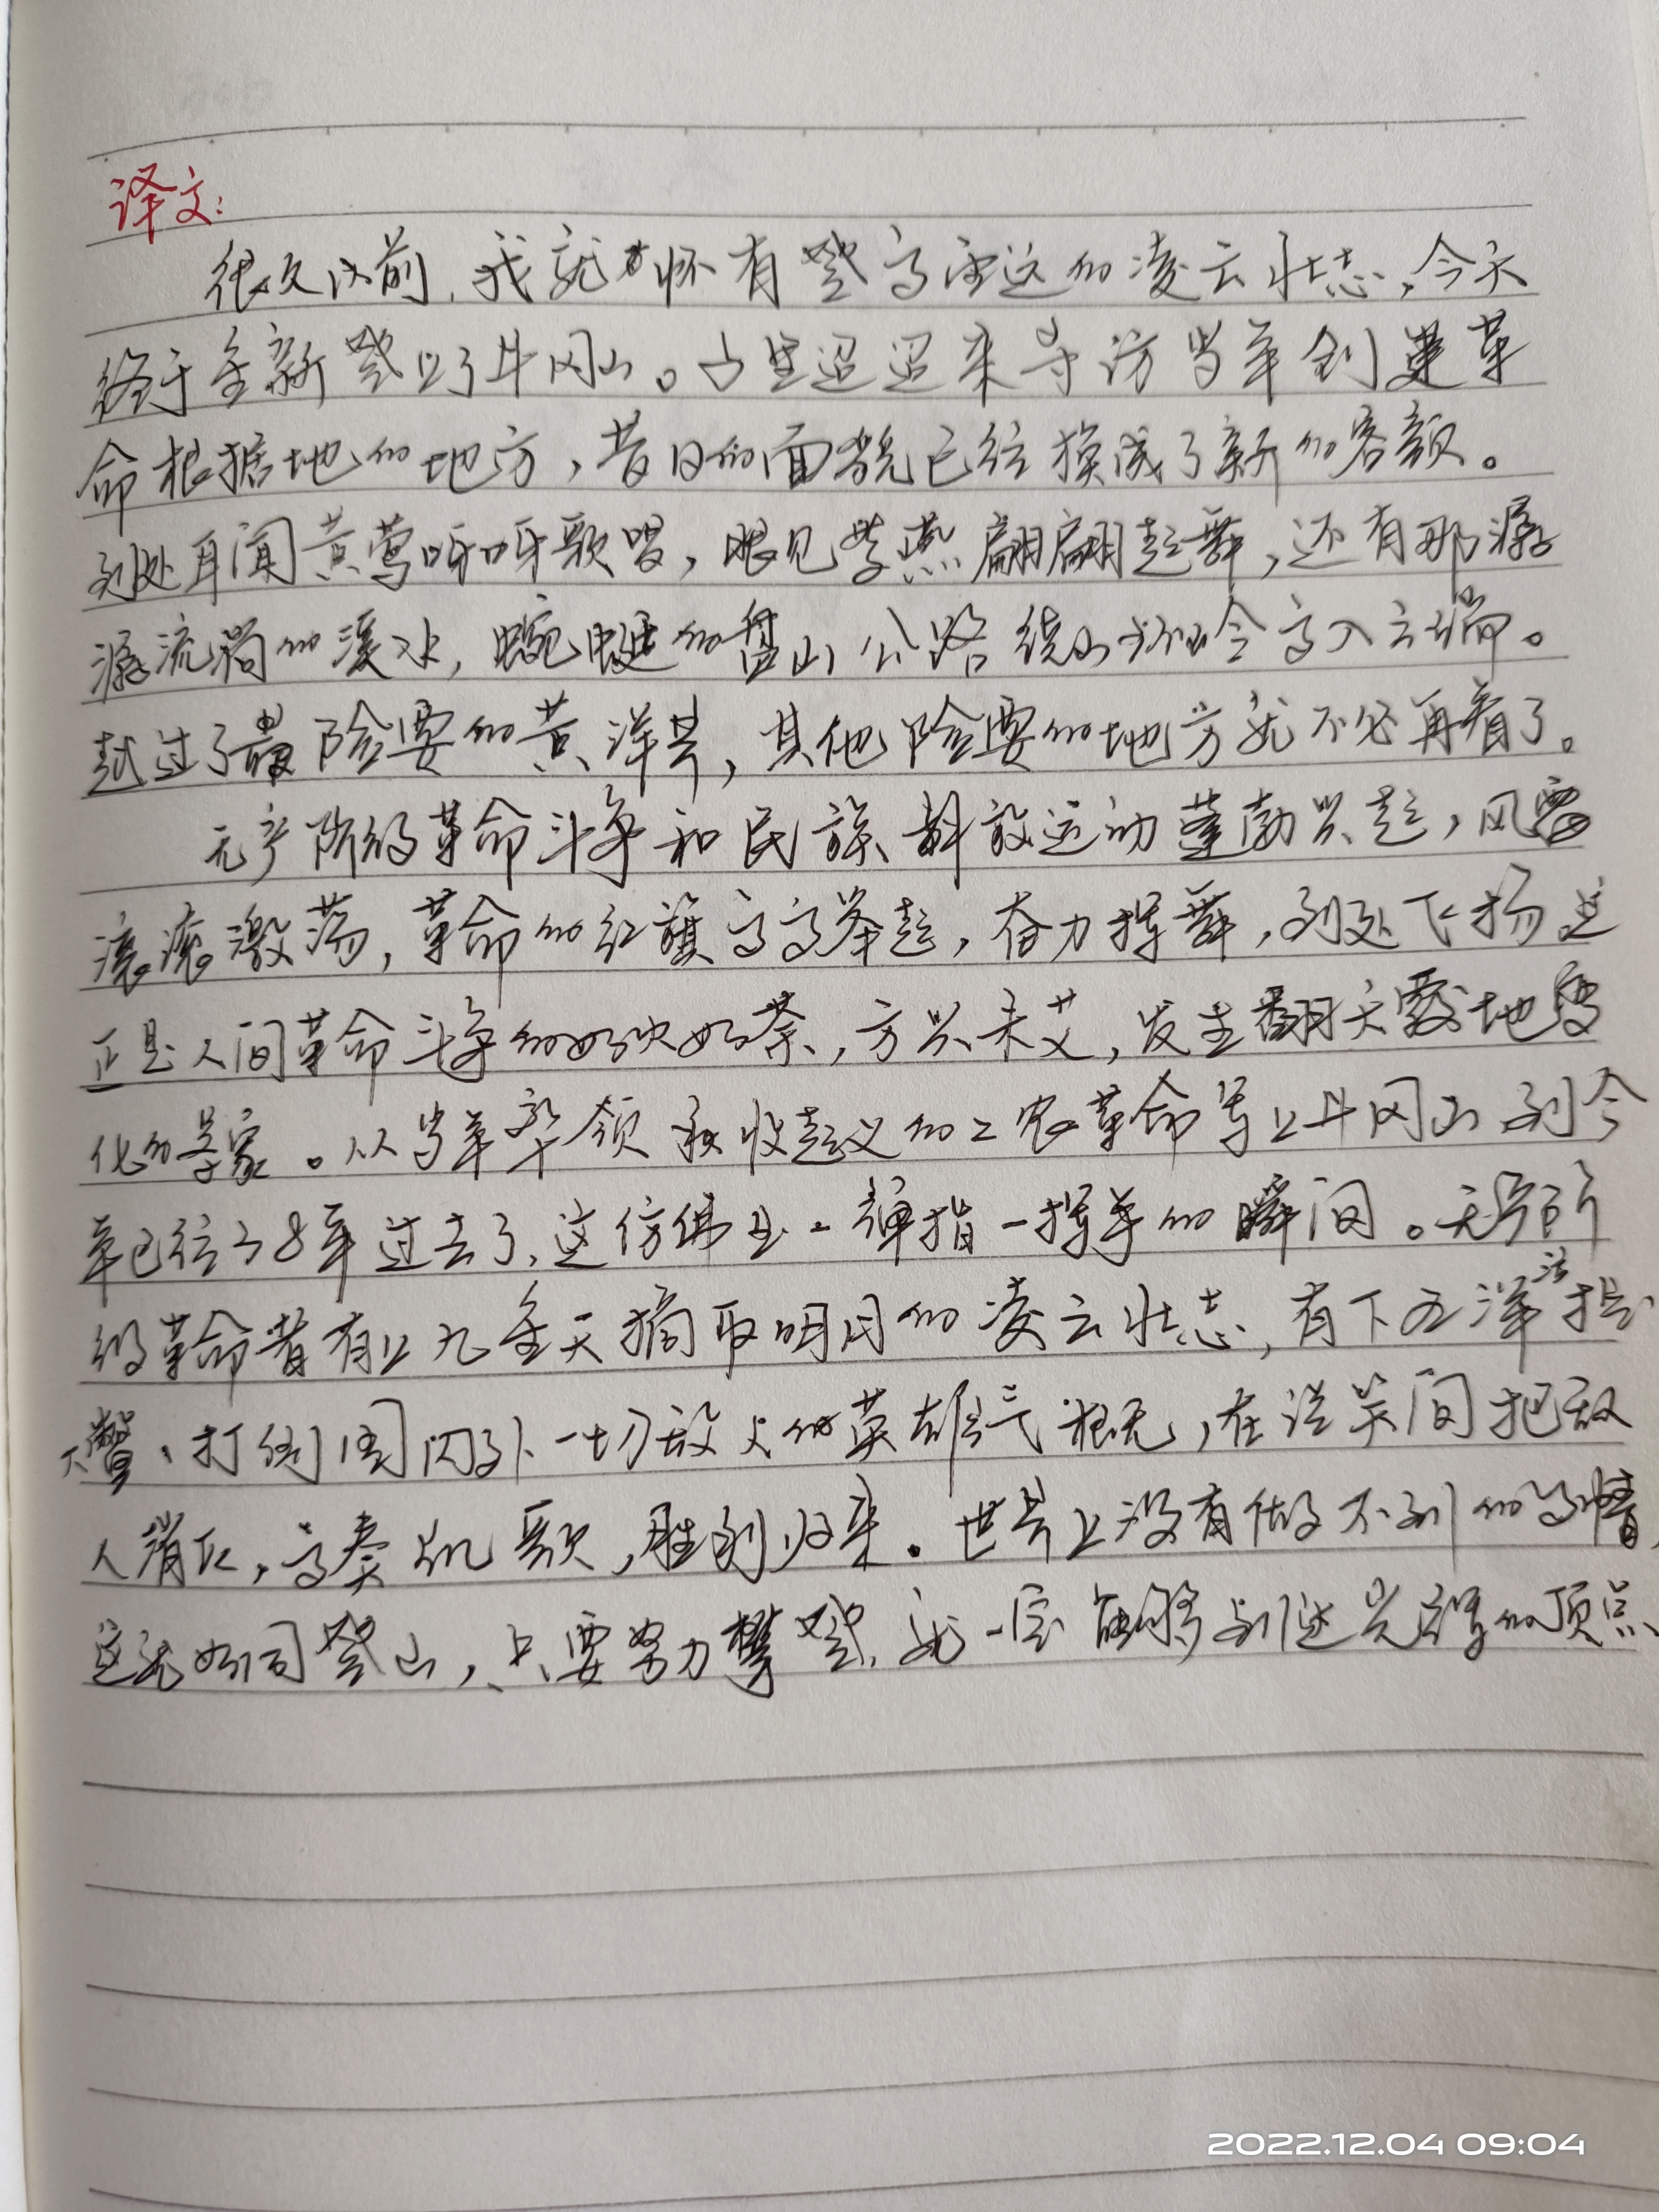 译文:
很久以前,我就怀有登高望远的凌云壮志,今天
终于重新登上了井冈山。千里迢迢来寻访当年创建革
命根据地的地方,昔日的面貌已经换成了新的容颜。
到处耳闻黄莺呀呀歌唱,眼见紫燕翩翩起舞,还有那潺
潺流淌的溪水,蜿蜒的盘山公路绕山环岭高入云端。
越过了最险要的黄洋界,其他险要的地方就不必再看了。
无产阶级革命斗争和民族解放运动蓬勃兴起,风雷
滚滚激荡,革命的红旗高高举起,奋力挥舞,到处飞扬这
正是人间革命斗争的如火如荼,方兴未艾,发生翻天覆地变
化的景象。从当年率领秋收起义的工农革命军上井冈山到今
年已经38年过去了,这仿佛是一弹指一挥手的瞬间。无产阶
级革命者有上九重天摘取明月的凌云壮志,有下五洋活捉
大鳖、打倒国内外一切敌人的英雄气概,在谈笑间把敌
人消灭,高奏凯歌,胜利归来。世界上没有做不到的事情,
这就如同登山,只要努力攀登,就一定能够到达光辉的顶点
2022.12.04 09:04